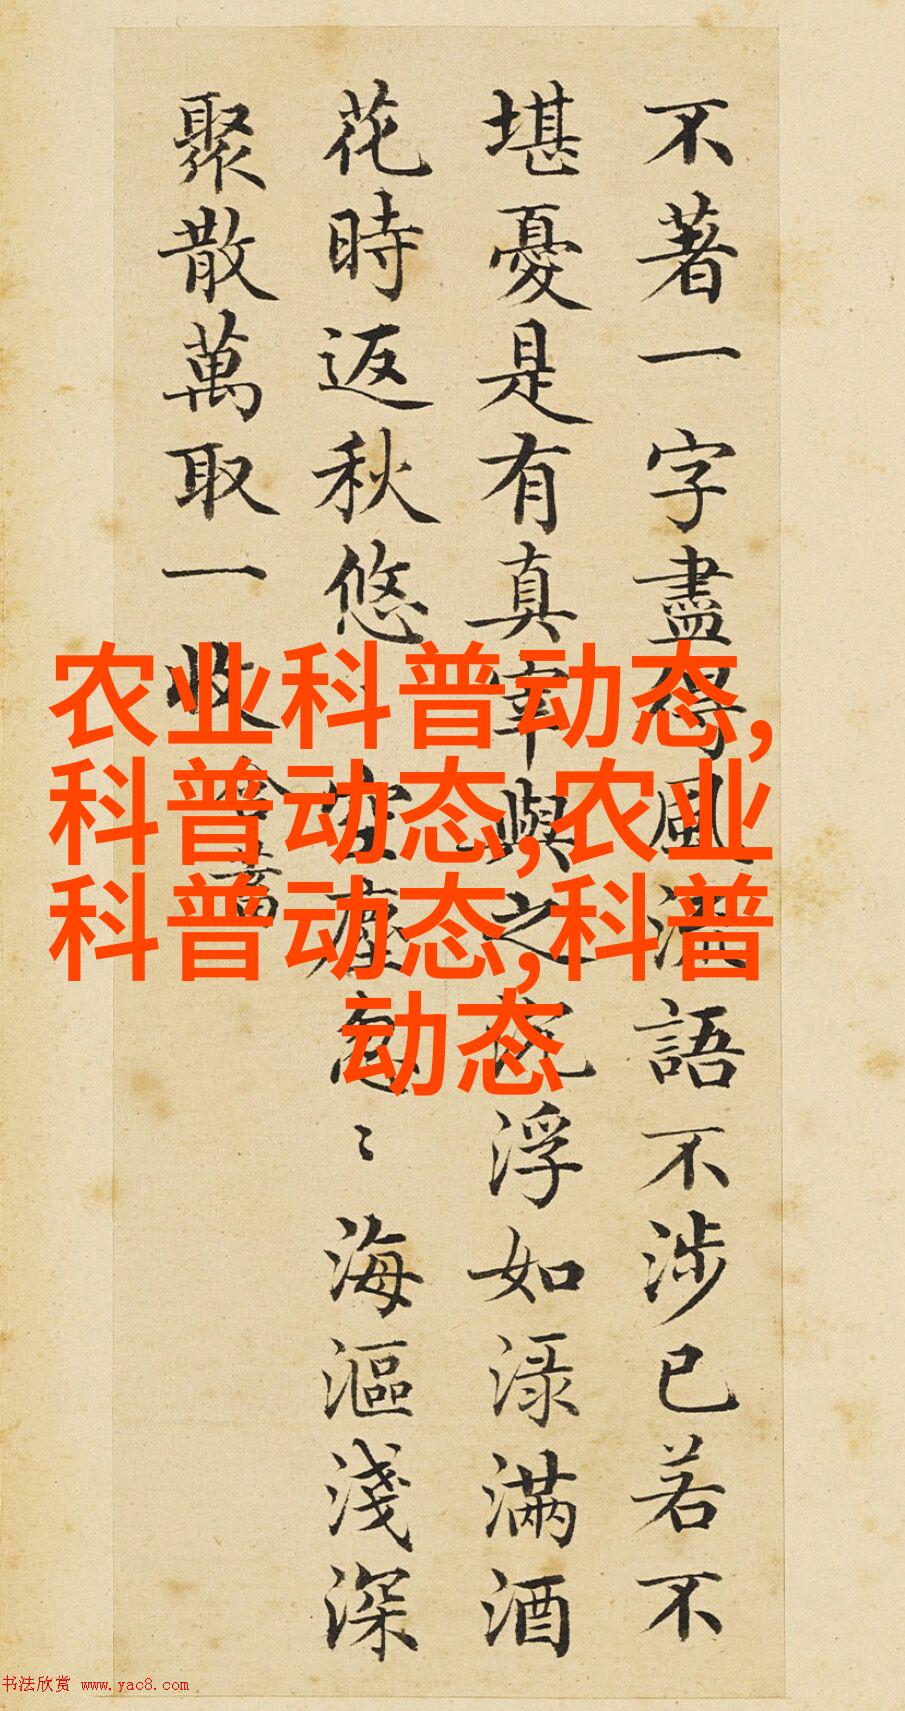 不著一字盡得風流語不涉已若不
堪憂是有真宰與之沉浮如淥滿酒
花時返秋悠空塵忽〻海漚淺深
聚散萬取一收
农业科普动态,
科普动态,农业
科普动态,科普
动态
书法欣赏 www.yac8.com